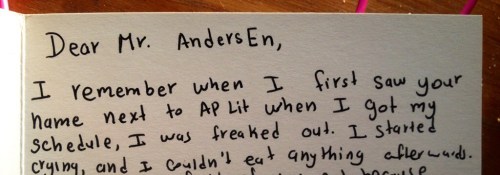 Dear Mr. AndersEn,
I remember when I first saw your
name next to AP Lit when I got my
schedule, I was freaked out. I started
crying, and I couldn't eat anything afterwards.
because